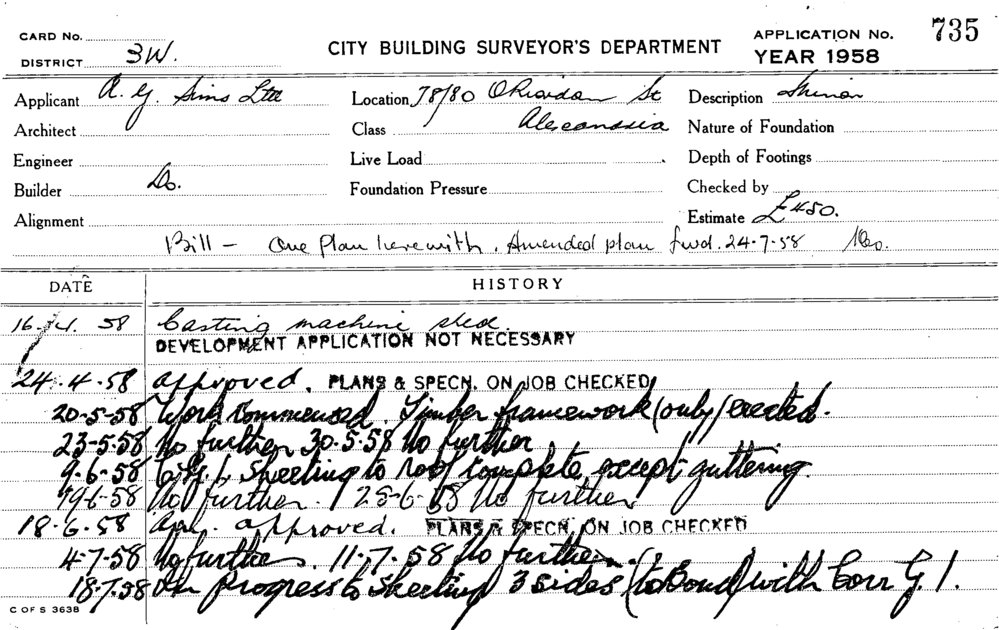 CARD No.
DISTRICT 3W.
CITY BUILDING SURVEYOR'S DEPARTMENT
APPLICATION No. 735
YEAR 1958
Applicant A. G. Sims Ltd
Location 78/80 O'Riordan St
Description Minor
Architect
Class Alexandria
Nature of Foundation
Engineer
Live Load
Depth of Footings
Builder Do.
Foundation Pressure
Checked by
Alignment
Estimate £450.
Bill - One Plan herewith. Amended plan fwd. 24-7-58
DATE HISTORY
16-4.58 Casting machine shed.
DEVELOPMENT APPLICATION NOT NECESSARY
24.4.58 Approved. PLANS & SPECN. ON JOB CHECKED
20-5-58 Work commenced. Timber framework (only) erected.
23-5-58 No further 30.5.58 No further
9-6-58 C.G.I. Sheeting to roof complete, except guttering.
No further. No further
18-6-58 approved. PLANS & SPECN. ON JOB CHECKED
4-7-58 No further. 11.7.58 No further.
18.7.58 In progress to sheeting 3 sides (to Bond) with Corr G. I.
C OF S 3638